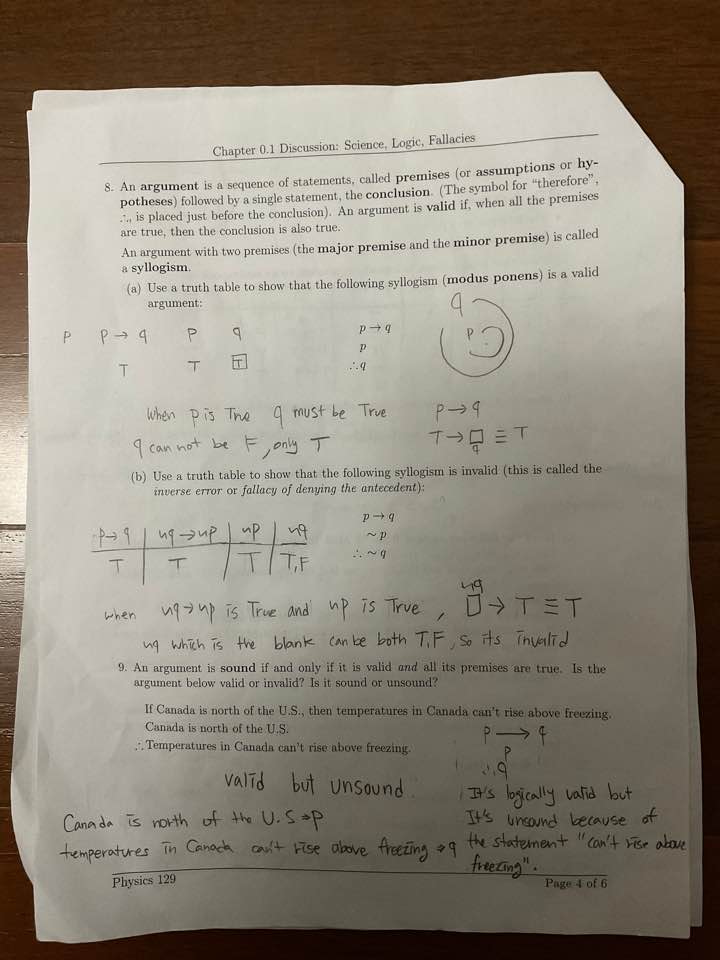 Chapter 0.1 Discussion: Science, Logic, Fallacies
8. An argument is a sequence of statements, called premises (or assumptions or hy-
potheses) followed by a single statement, the conclusion. (The symbol for "therefore",
∴, is placed just before the conclusion). An argument is valid if, when all the premises
are true, then the conclusion is also true.
An argument with two premises (the major premise and the minor premise) is called
a syllogism.
(a) Use a truth table to show that the following syllogism (modus ponens) is a valid
argument:
q
P P → q P q p → q
P
p
T T T ∴ q
When p is True q must be True P → q
q can not be F, only T T → □ ≡ T
q
(b) Use a truth table to show that the following syllogism is invalid (this is called the
inverse error or fallacy of denying the antecedent):
p → q
P→q ~q → ~p ~p ~q ~ p
T T T T,F ∴ ~ q
~q
when ~q → ~p is True and ~p is True, □ → T ≡ T
~q which is the blank can be both T,F, so its invalid
9. An argument is sound if and only if it is valid and all its premises are true. Is the
argument below valid or invalid? Is it sound or unsound?
If Canada is north of the U.S., then temperatures in Canada can't rise above freezing.
Canada is north of the U.S.
∴ Temperatures in Canada can't rise above freezing.
P → q
P
∴ q
valid but unsound
It's logically valid but
Canada is north of the U.S ⇒ P
It's unsound because of
temperatures in Canada can't rise above freezing ⇒ q
the statement "can't rise above
freezing".
Physics 129 Page 4 of 6